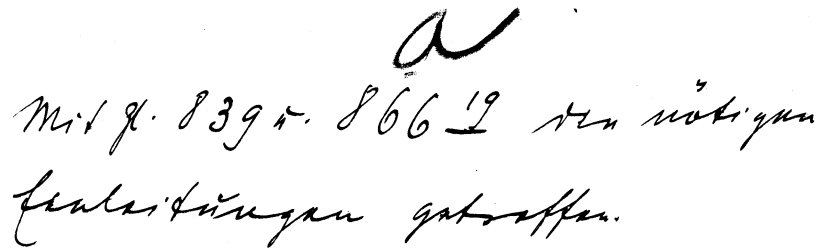 a
Mit Zl. 839 u. 866 19 die nötigen
Einleitungen getroffen.